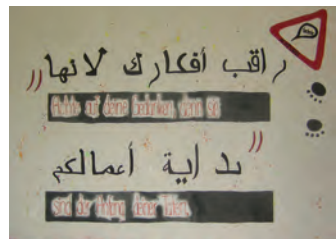 راقب أفكارك لانها
Achte auf deine Gedanken, denn sie
بداية أعمالكم
sind der Anfang deiner Taten.